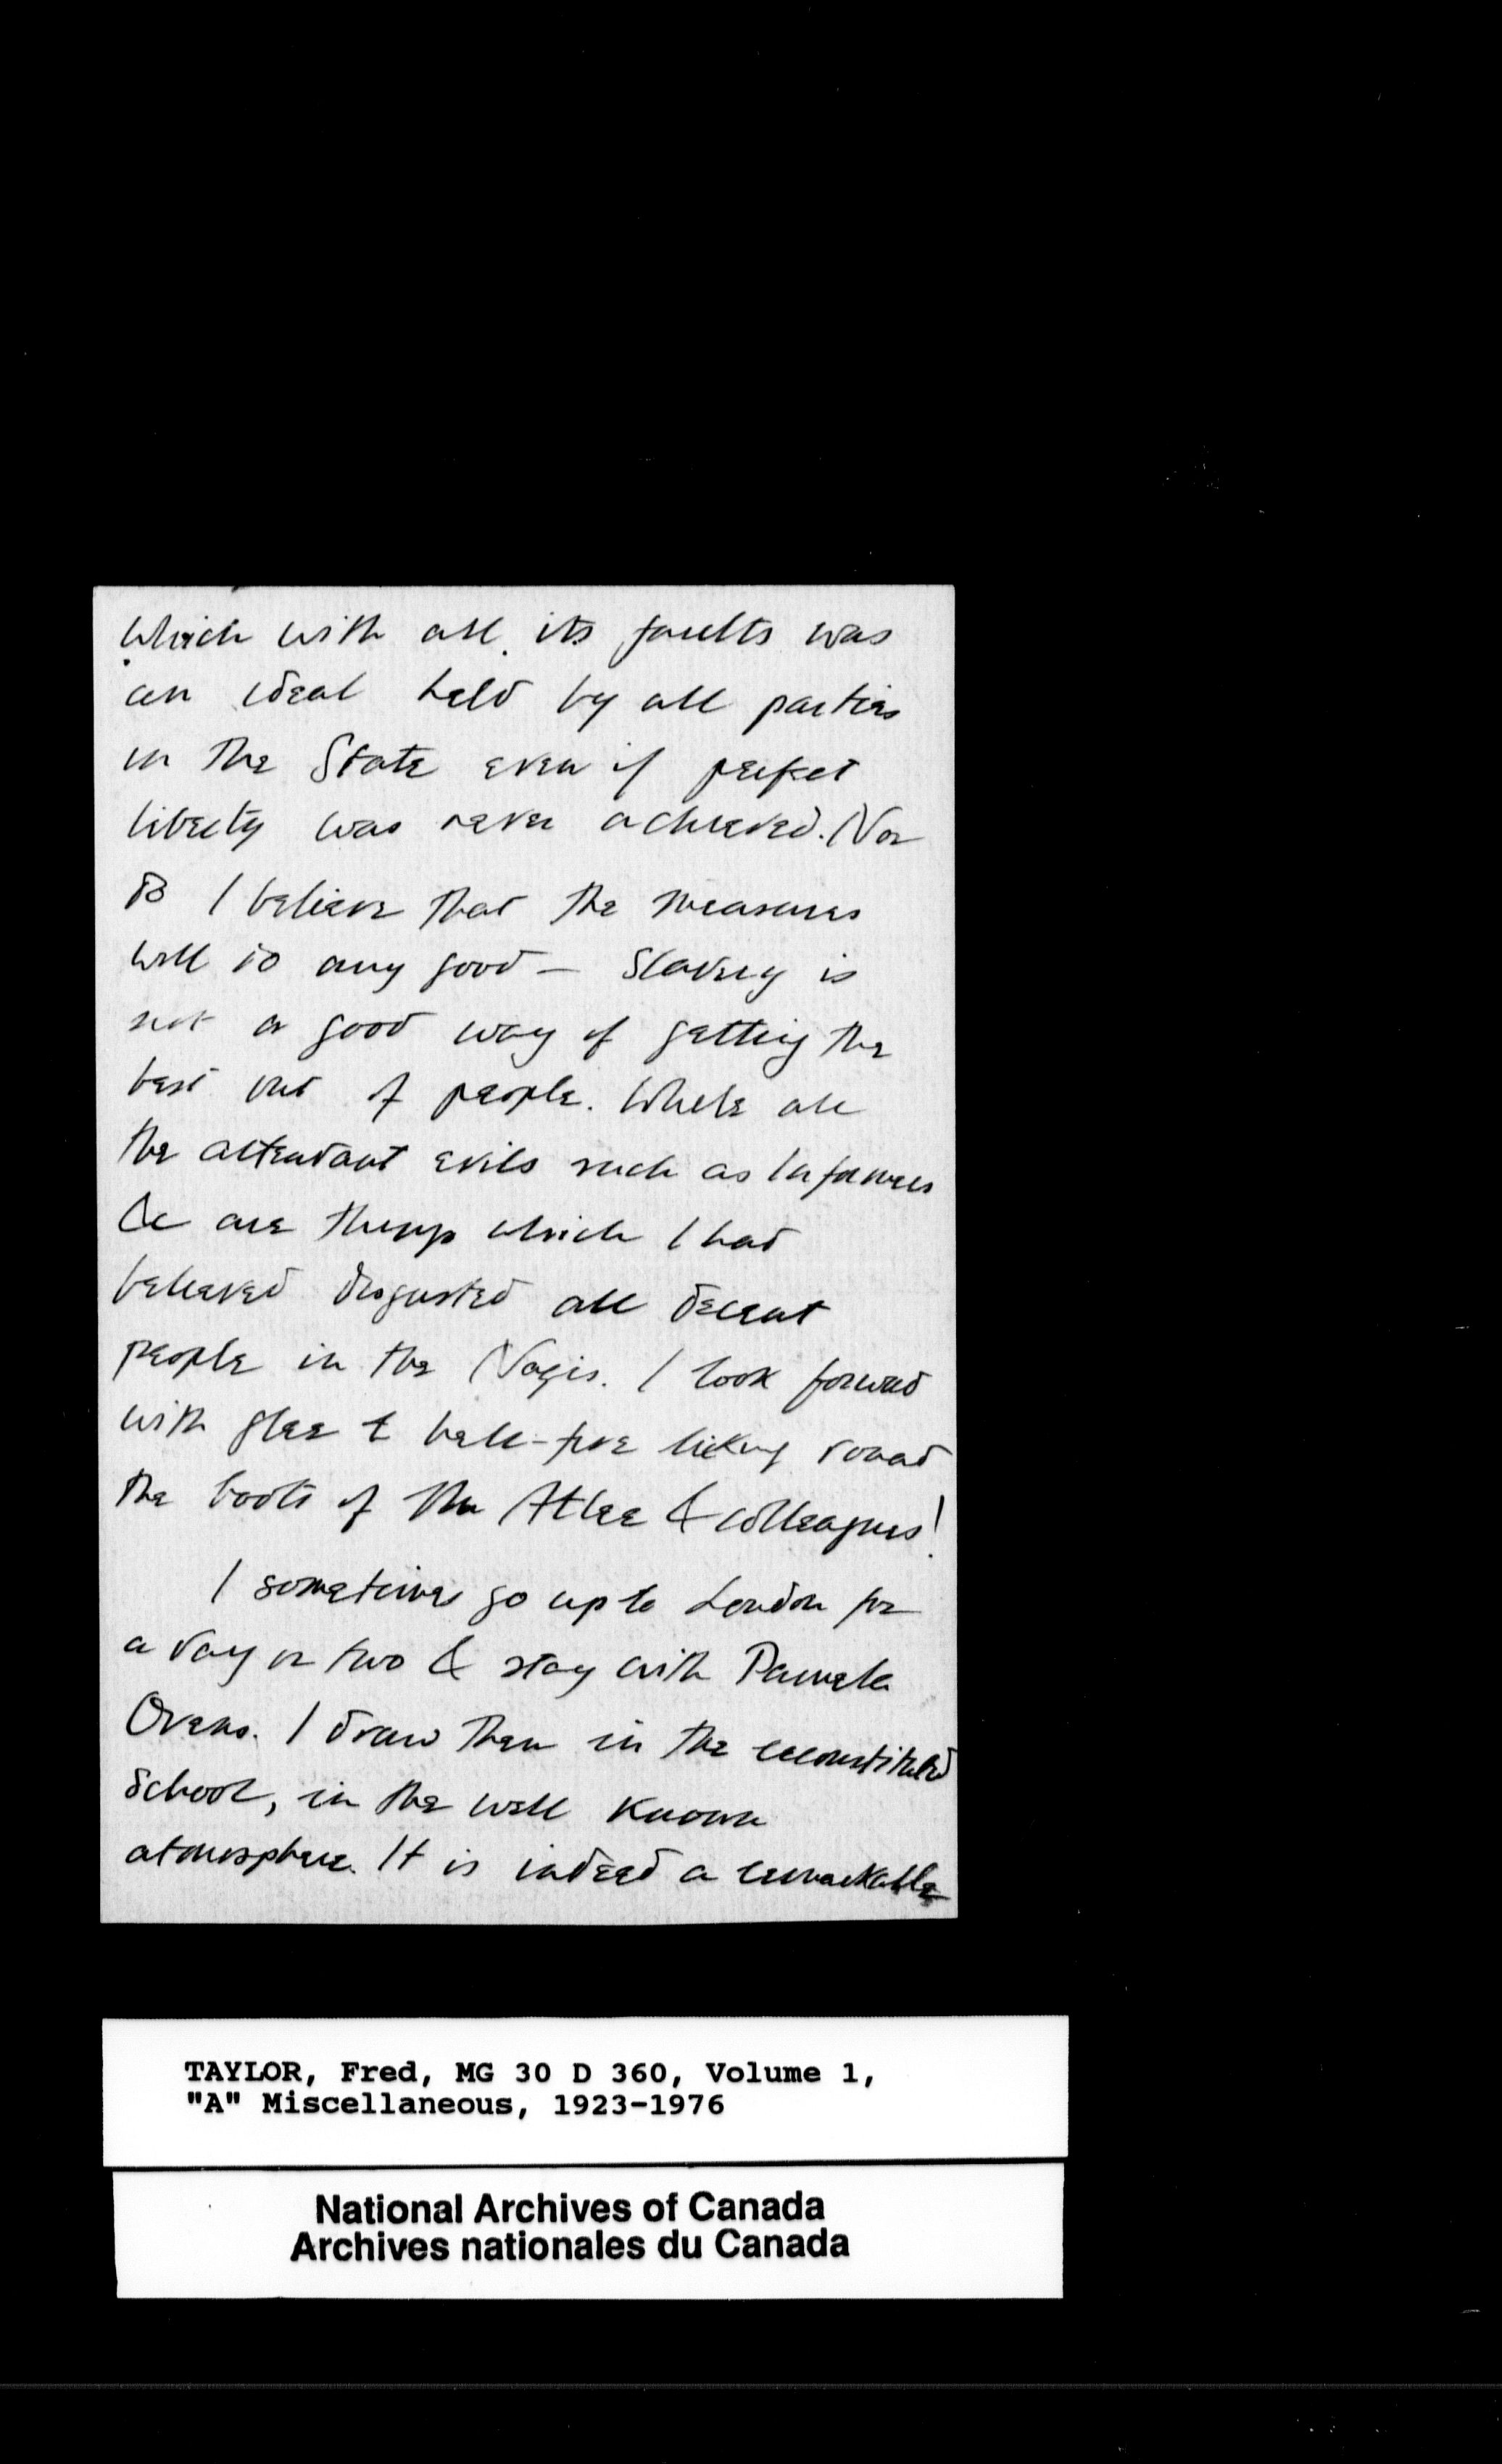 which with all its faults was
an ideal held by all parties
in the State even if perfect
liberty was never achieved. Nor
do I believe that the measures
will do any good – Slavery is
not a good way of getting the
best out of people. While all
the attendant evils such as Informers
&c are things which I had
believed disgusted all decent
people in the Nazis. I look forward
with glee to hell-fire licking round
the boots of Mr Atlee & colleagues!
I sometimes go up to London for
a day or two & stay with Pamela
Ovens. I draw then in the reconstituted
School, in the well known
atmosphere. It is indeed a remarkable
TAYLOR, Fred, MG 30 D 360, Volume 1,
"A" Miscellaneous, 1923-1976
National Archives of Canada
Archives nationales du Canada